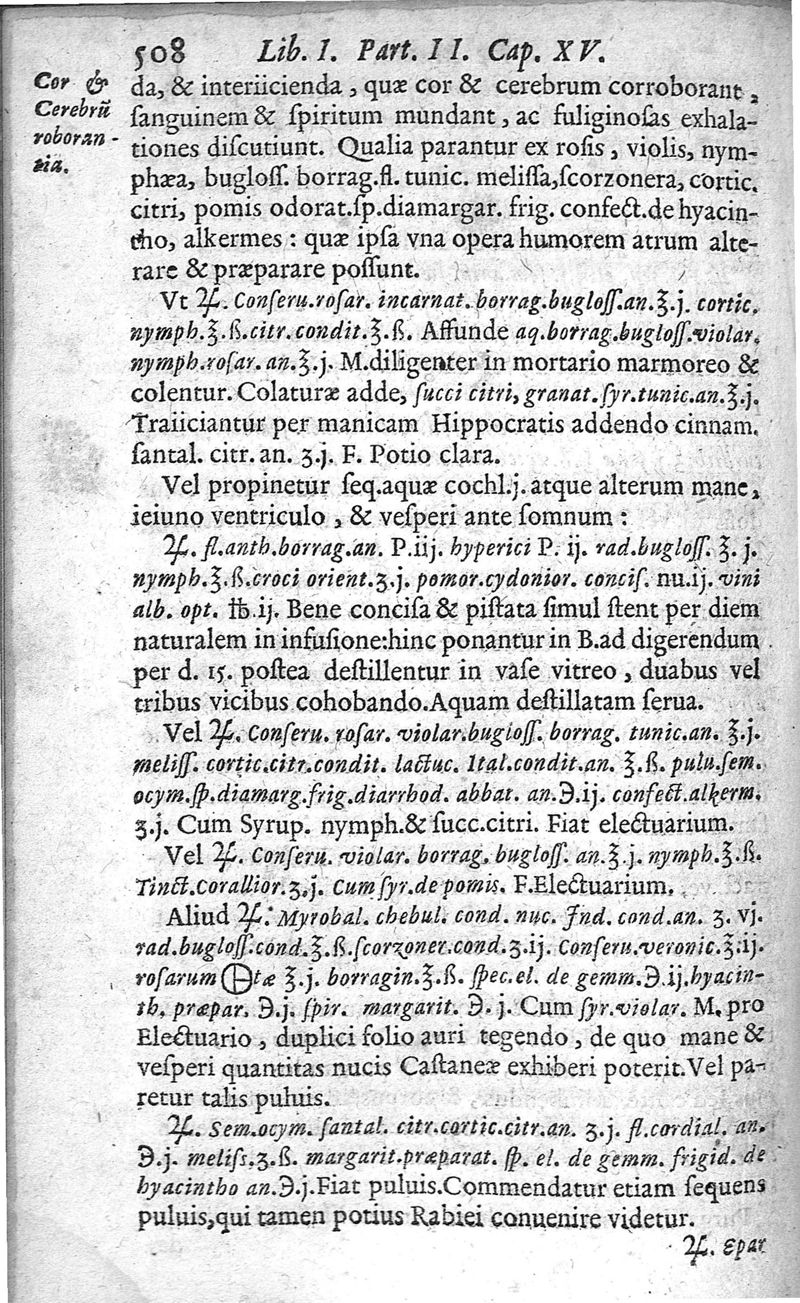 508 Lib. I. Part. II. Cap. XV.
Cor &
Cerebrũ
roboran-
tia.
da, & interiicienda, quæ cor & cerebrum corroborant,
ſanguinem & ſpiritum mundant, ac fuliginoſas exhala-
tiones diſcutiunt. Qualia parantur ex roſis, violis, nym-
phæa, bugloſſ. borrag.fl. tunic. meliſſa,ſcorzonera, cortic.
citri, pomis odorat.ſp.diamargar. frig. confect.de hyacin-
tho, alkermes : quæ ipſa vna opera humorem atrum alte-
rare & præparare poſſunt.
Vt ♃. Conſeru.roſar. incarnat. borrag.bugloſſ.an.℥.j. cortic.
nymph.℥.ß.citr.condit.℥.ß. Affunde aq.borrag.bugloſſ.violar.
nymph.roſar.an.℥.j. M.diligenter in mortario marmoreo &
colentur. Colaturæ adde, ſucci citri, granat.ſyr.tunic.an.℥.j.
Traiiciantur per manicam Hippocratis addendo cinnam.
ſantal. citr. an. ʒ.j. F. Potio clara.
Vel propinetur ſeq.aquæ cochl.j. atque alterum mane,
ieiuno ventriculo, & veſperi ante ſomnum :
♃. fl.anth.borrag.an. P.iij. hyperici P. ij. rad.bugloſſ. ℥. j.
nymph.℥.ß.croci orient.ʒ.j. pomor.cydonior. conciſ. nu.ij. vini
alb. opt. ℔.ij. Bene conciſa & piſtata ſimul ſtent per diem
naturalem in infuſione:hinc ponantur in B.ad digerendum
per d. 15. poſtea deſtillentur in vaſe vitreo, duabus vel
tribus vicibus cohobando.Aquam deſtillatam ſerua.
Vel ♃. Conſeru. roſar. violar.bugloſſ. borrag. tunic.an. ℥.j.
meliſſ. cortic.citr.condit. lactuc. Ital.condit.an. ℥.ß. pulu.ſem.
ocym.ſp.diamarg.frig.diarrhod. abbat. an.℈.ij. confect.alkerm.
ʒ.j. Cum Syrup. nymph.& ſucc.citri. Fiat electuarium.
Vel ♃. Conſeru. violar. borrag. bugloſſ. an.℥.j. nymph.℥.ß.
Tinct.Corallior.ʒ.j. Cum ſyr.de pomis. F.Electuarium.
Aliud ♃. Myrobal. chebul. cond. nuc. Ind. cond.an. ʒ. vj.
rad.bugloſſ.cond.℥.ß.ſcorzoner.cond.ʒ.ij. Conſeru.veronic.℥.ij.
roſarum 🜔tæ ℥.j. borragin.℥.ß. ſpec.el. de gemm.℈.ij.hyacin-
th. præpar. ℈.j. ſpir. margarit. ℈. j. Cum ſyr.violar. M. pro
Electuario, duplici folio auri tegendo, de quo mane &
veſperi quantitas nucis Caſtaneæ exhiberi poterit.Vel pa-
retur talis puluis.
♃. Sem.ocym. ſantal. citr.cortic.citr.an. ʒ.j. fl.cordial. an.
℈.j. meliſs.ʒ.ß. margarit.præparat. ſp. el. de gemm. frigid. de
hyacintho an.℈.j.Fiat puluis.Commendatur etiam ſequens
puluis,qui tamen potius Rabiei conuenire videtur.
♃. epar